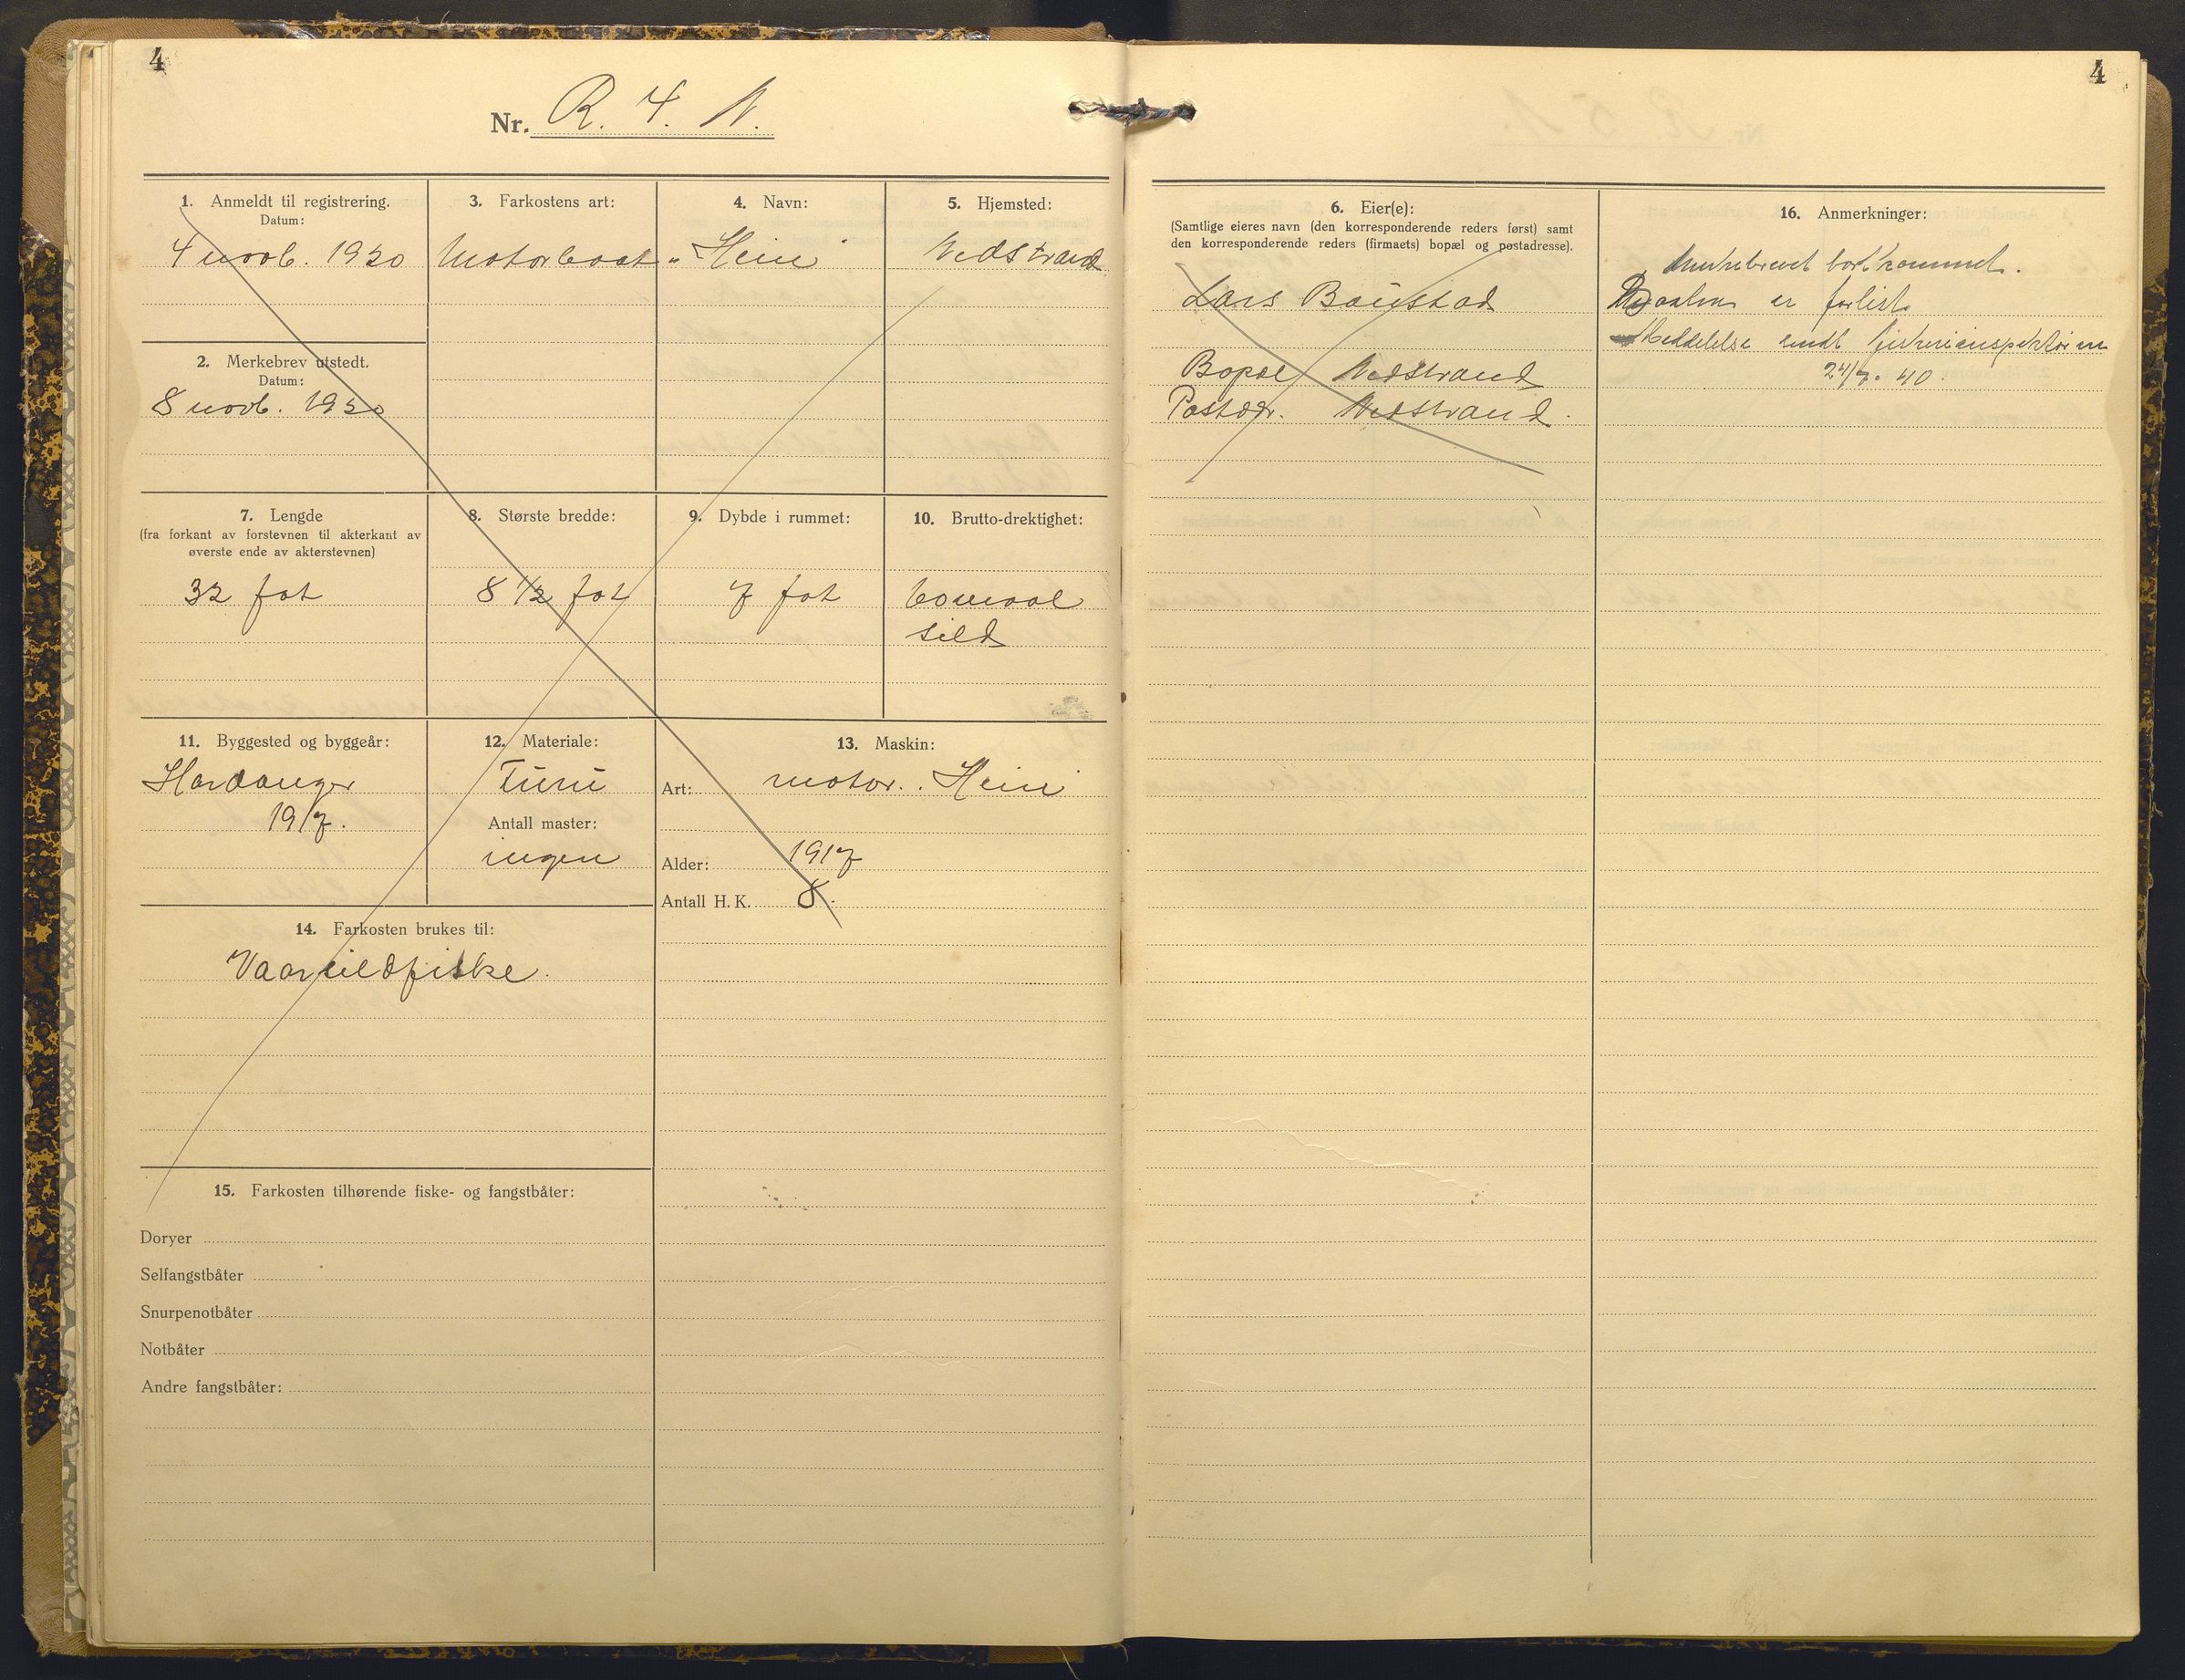 4
Nr. R. 4. N.
1. Anmeldt til registrering.
Datum:
4 novb. 1920
2. Merkebrev utstedt.
Datum:
8 novb. 1920
3. Farkostens art:
Motorbaat
4. Navn:
"Hein"
5. Hjemsted:
Nedstrand
7. Lengde
(fra forkant av forstevnen til akterkant av
øverste ende av akterstevnen)
32 fot
8. Største bredde:
8 1/2 fot
9. Dybde i rummet:
7 fot
10. Brutto-drektighet:
sild
11. Byggested og byggeår:
Hardanger
1917.
12. Materiale:
Furu
Antall master:
ingen
13. Maskin:
Art: motor. Hein
Alder: 1917
Antall H. K. 8.
14. Farkosten brukes til:
Vaarsildfiske.
15. Farkosten tilhørende fiske- og fangstbåter:
Doryer
Selfangstbåter
Snurpenotbåter
Notbåter
Andre fangstbåter:
4
6. Eier(e):
(Samtlige eieres navn (den korresponderende reders først) samt
den korresponderende reders (firmaets) bopæl og postadresse).
Lars Baustad
Bopæl Nedstrand
Postadr. Nedstrand.
16. Anmerkninger:
Merkebrevet bortkommet.
Baaten er forlist.
Meddelelse sendt fiskeriinspektøren
24/7. 40.